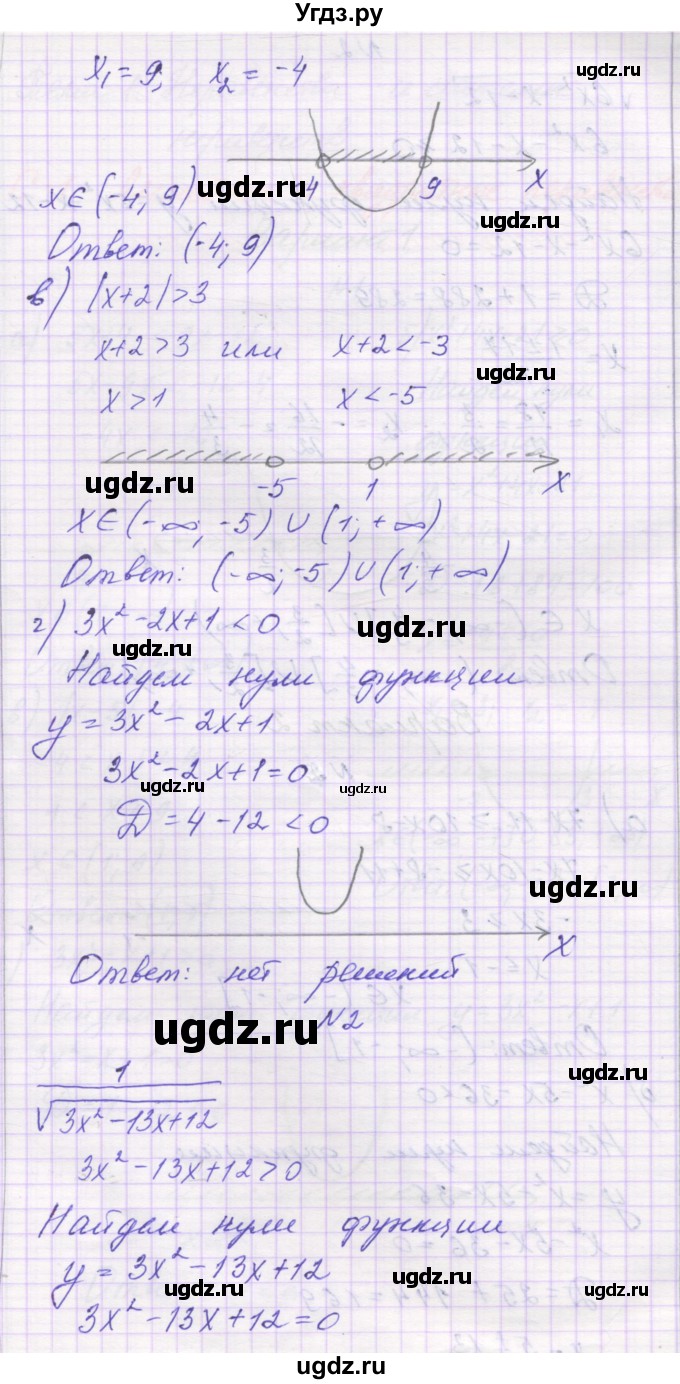 Угдз.ру
x₁ = 9, x₂ = -4
ugdz.ru
x ∈ (-4; 9) ugdz.ru -4 9 x
ugdz.ru
Ответ: (-4; 9)
в) |x+2| > 3
x+2 > 3 или x+2 < -3
ugdz.ru
x > 1 x < -5
ugdz.ru -5 1 x
x ∈ (-∞; -5) ∪ (1; +∞)
Ответ: (-∞; -5) ∪ (1; +∞)
г) 3x² - 2x + 1 < 0 ugdz.ru
ugdz.ru
Найдем нули функции
y = 3x² - 2x + 1
3x² - 2x + 1 = 0
ugdz.ru ugdz.ru
D = 4 - 12 < 0
ugdz.ru
x
Ответ: нет решений
ugdz.ru N2
1
ugdz.ru
√3x² - 13x + 12
3x² - 13x + 12 > 0
Найдем нули функции
y = 3x² - 13x + 12
ugdz.ru ugdz.ru
3x² - 13x + 12 = 0
ugdz.ru
ugdz.ru